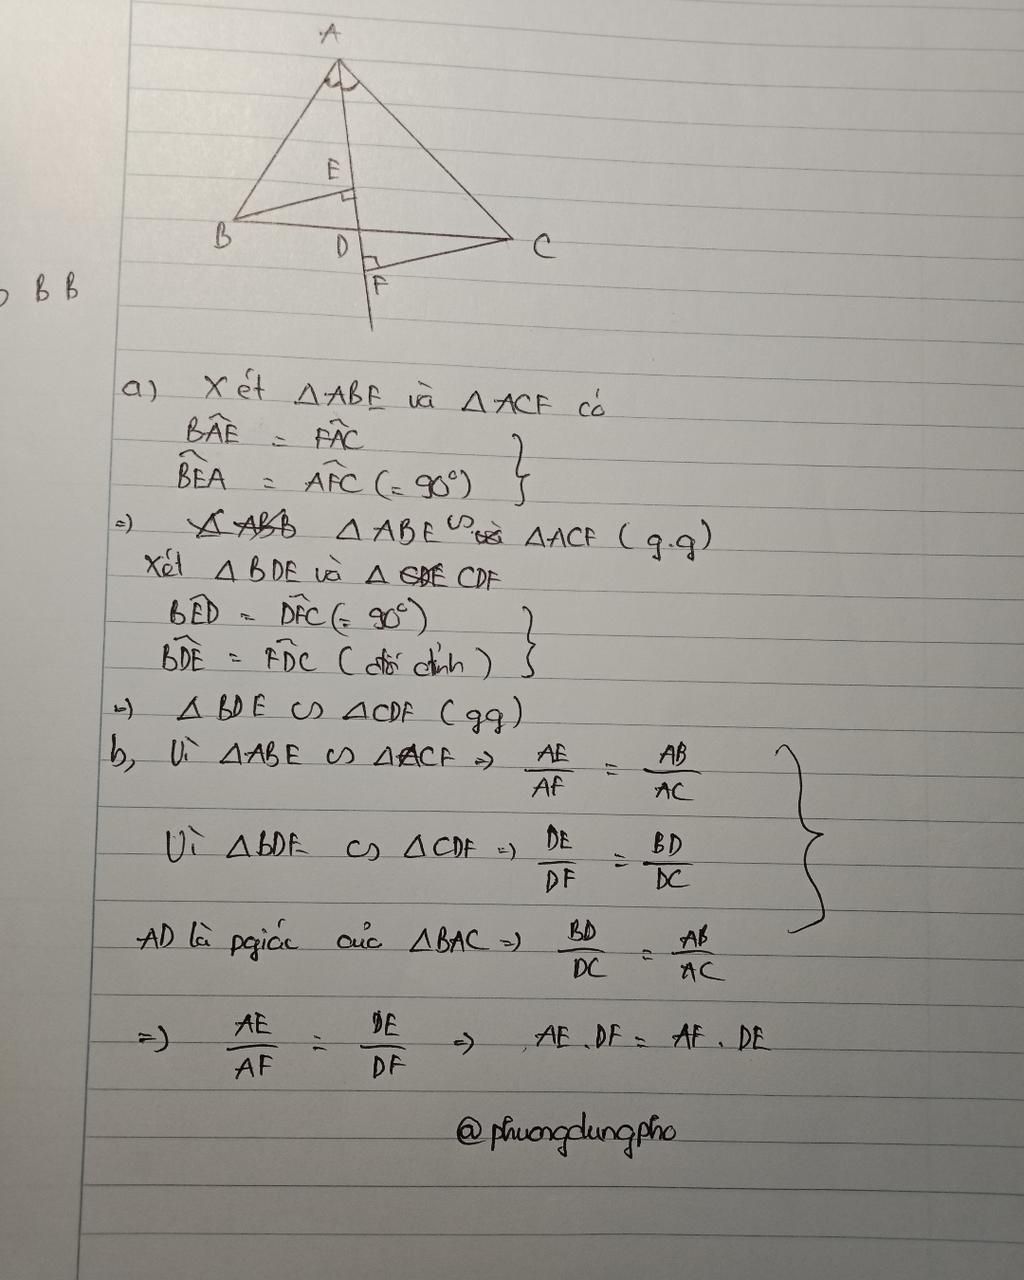 A
E
B
D
C
F
B B
a) Xét △ABE và △ACF có
BÂE = FÂC
BÊA = AF̂C (= 90°)
=) △ ABE ∽ △ACF (g.g)
Xét △BDE và △ CDF
BÊD = DF̂C (= 90°)
BD̂E = FD̂C (đối đỉnh)
=) △BDE ∽ △CDF (gg)
b, Vì △ABE ∽ △ACF => AE/AF = AB/AC
Vì △BDE ∽ △CDF => DE/DF = BD/DC
AD là pgiác của △BAC => BD/DC = AB/AC
=) AE/AF = DE/DF => AE.DF = AF.DE
@phuongdungpho